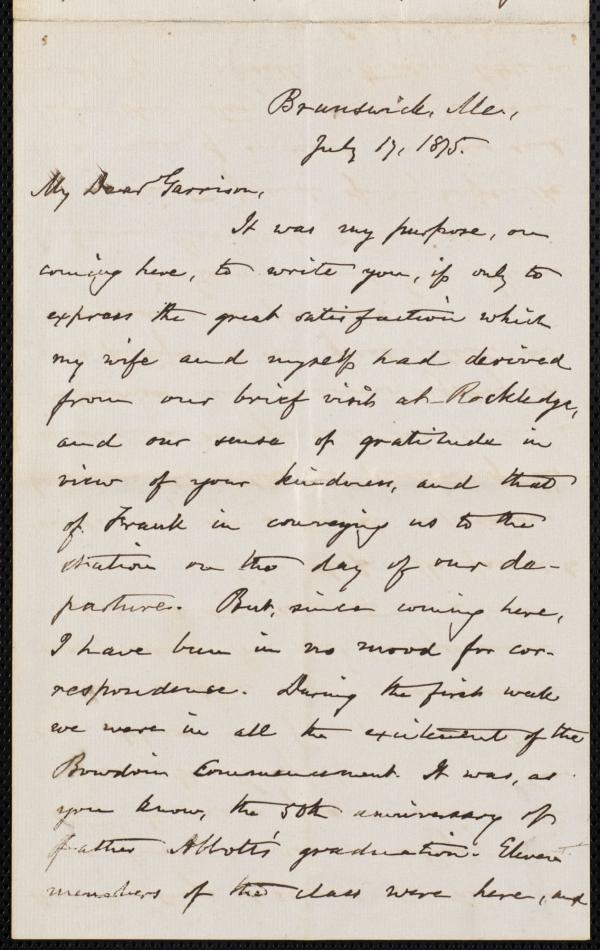 Brunswick, Me.,
July 17, 1875.
My Dear Garrison,
It was my purpose, on
coming here, to write you, if only to
express the great satisfaction which
my wife and myself had derived
from our brief visit at Rockledge,
and our sense of gratitude in
view of your kindness, and that
of Frank in conveying us to the
station on the day of our de-
parture. But, since coming here,
I have been in no mood for cor-
respondence. During the first week
we were in all the excitement of the
Bowdoin Commencement. It was, as
you know, the 50th anniversary of
father Abbott's graduation. Eleven
members of the class were here, and